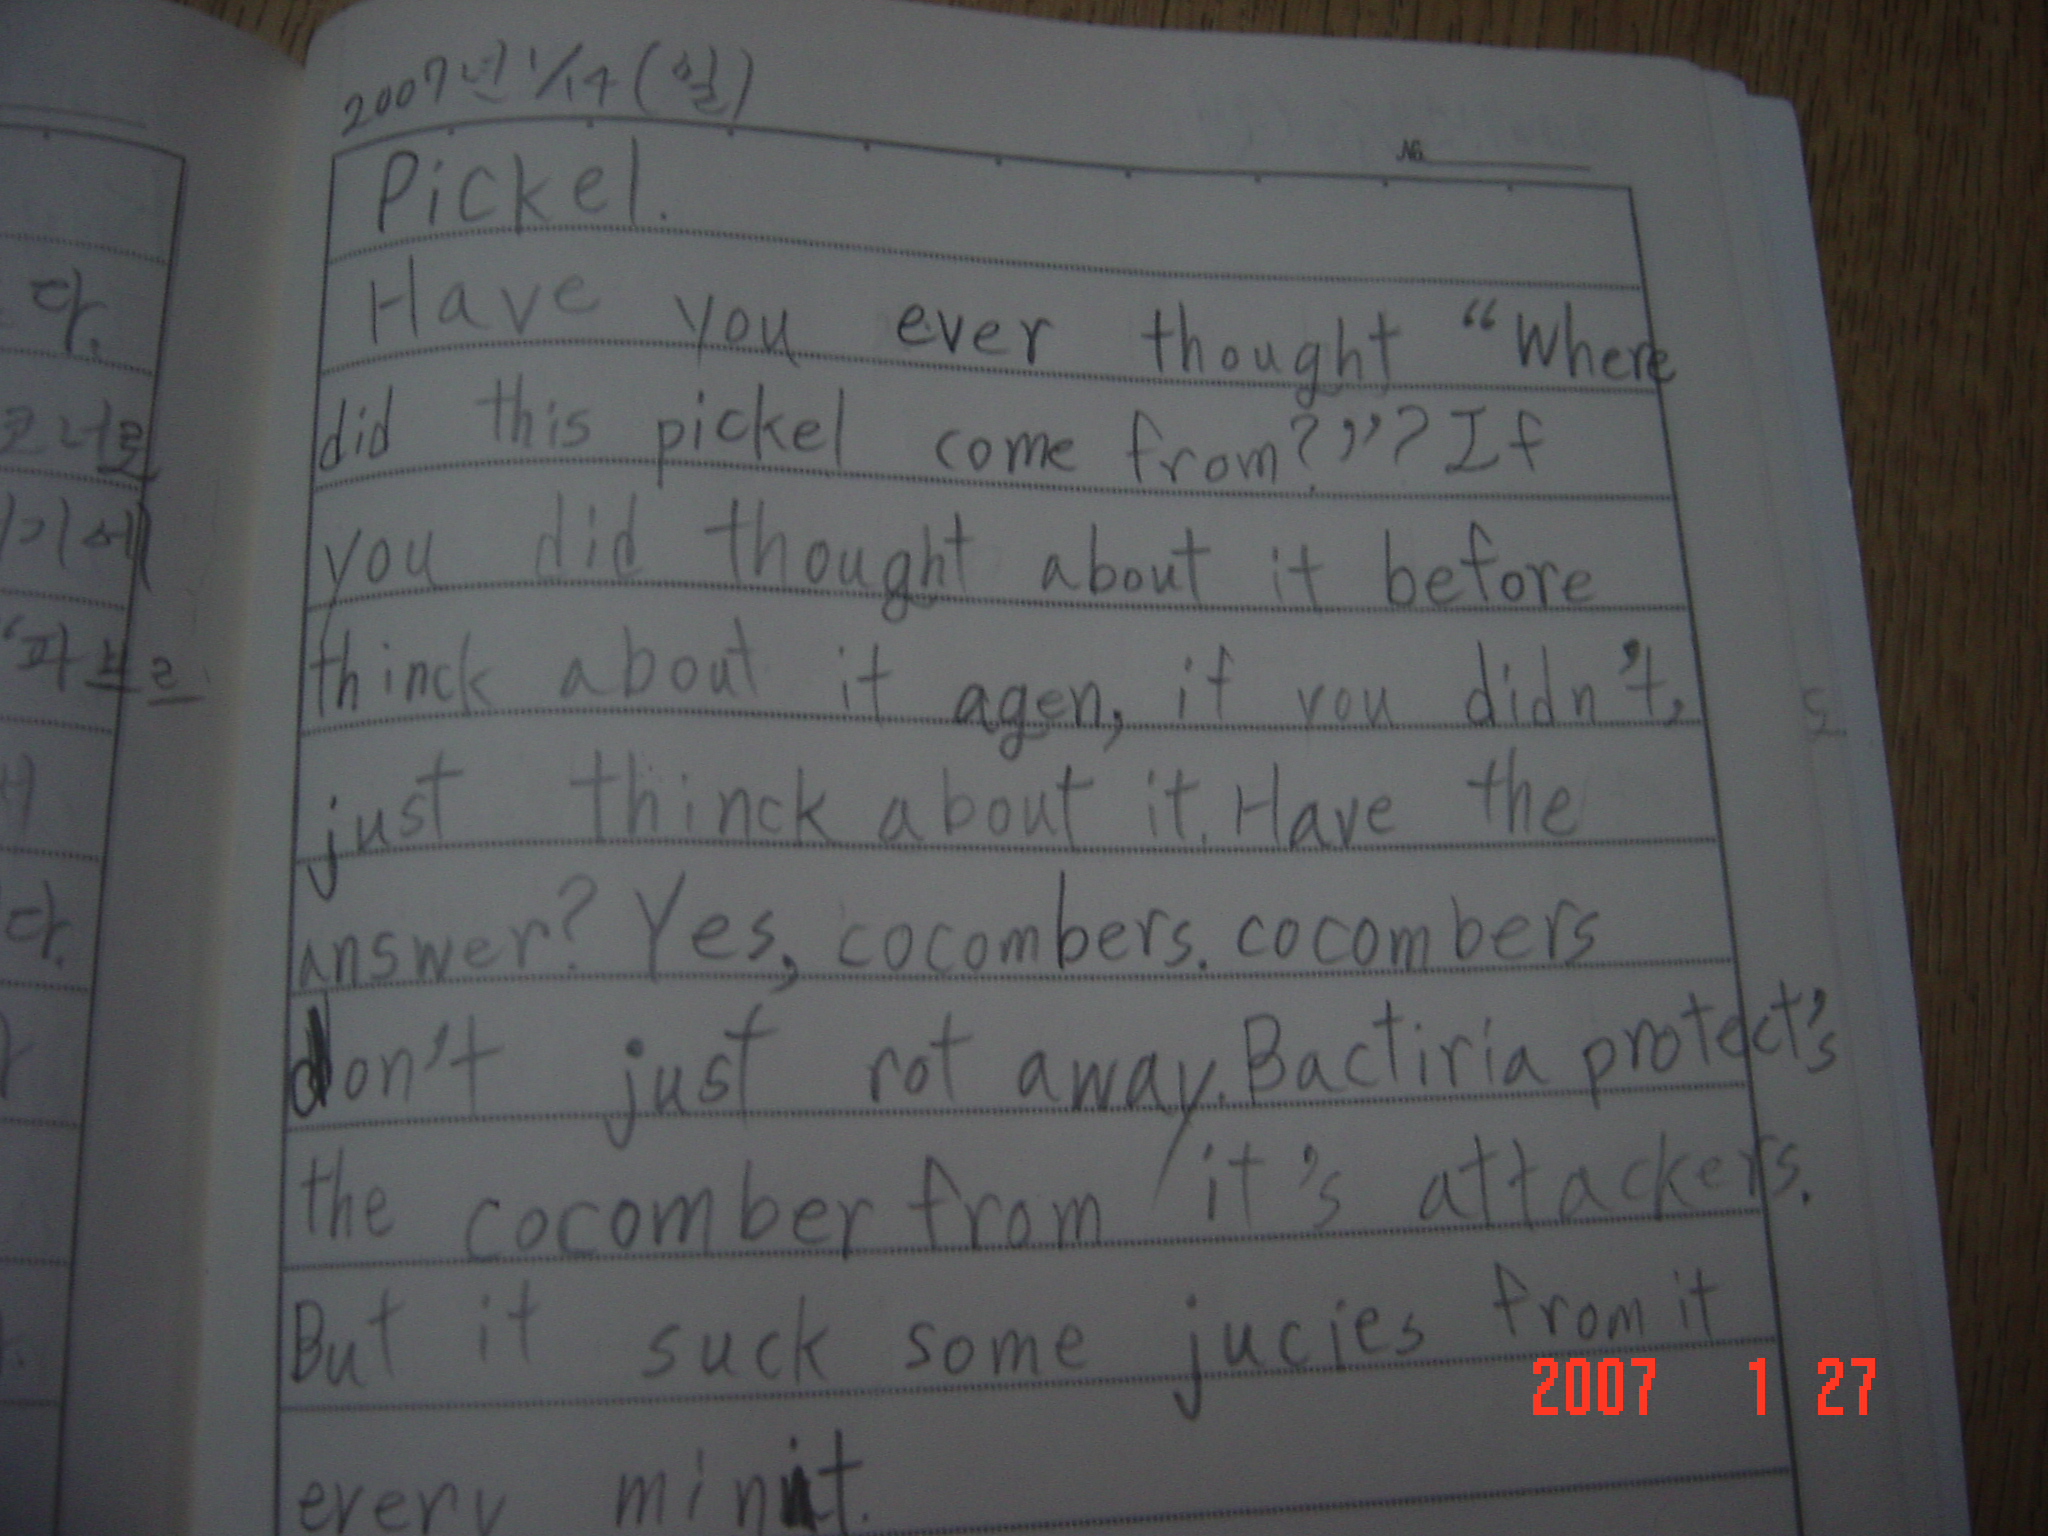 다.
코너로
기에
“파브르
다.
2007년 1/14 (일)
No.
Pickel.
Have you ever thought “Where
did this pickel come from?”? If
you did thought about it before
thinck about it agen, if you didn't,
just thinck about it. Have the
answer? Yes, cocombers. cocombers
don't just rot away. Bactiria protect's
the cocomber from it's attackers.
But it suck some jucies from it
every minit.
2007 1 27